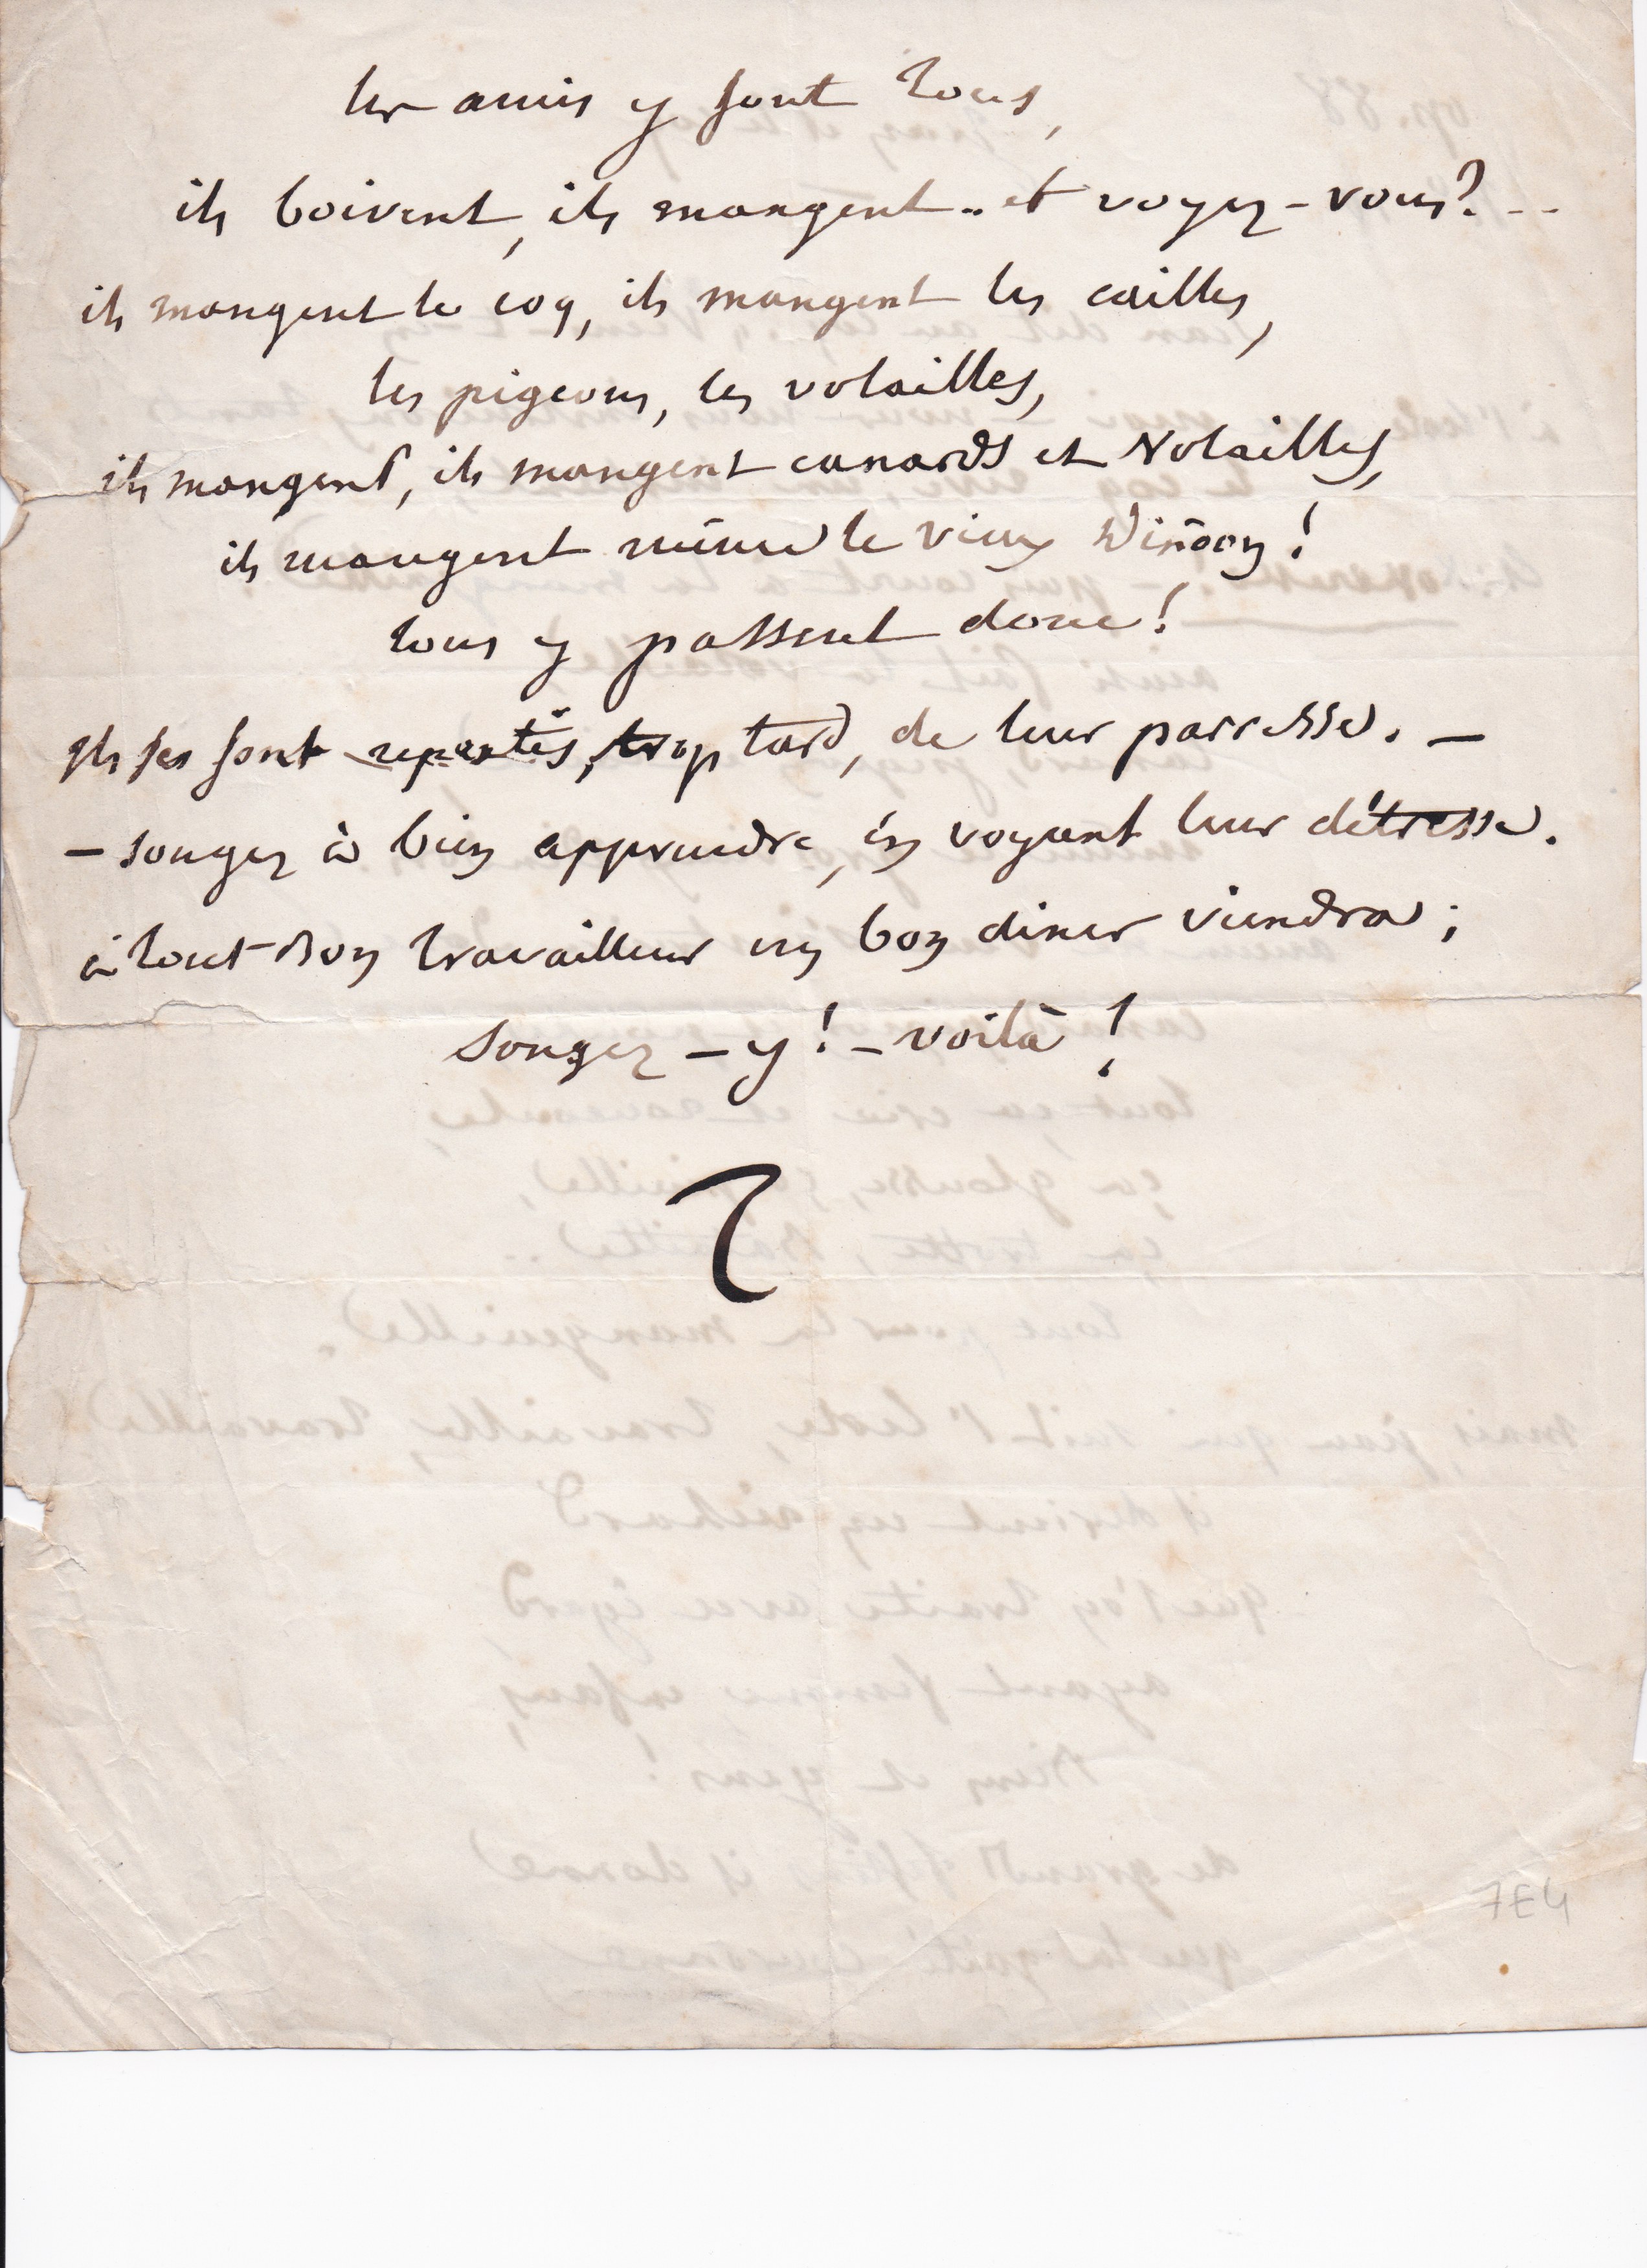 les amis y sont tous,
ils boivent, ils mangent.. et voyez-vous? --
ils mangent le coq, ils mangent les cailles,
les pigeons, les volailles,
ils mangent, ils mangent canards et volailles,
ils mangent même le vieux Dindon!
tous y passent donc!
ils se sont repentis, trop tard, de leur paresse. —
— songez à bien apprendre, en voyant leur détresse.
à tout bon travailleur un bon diner viendra;
songez-y! - voilà!
7E4